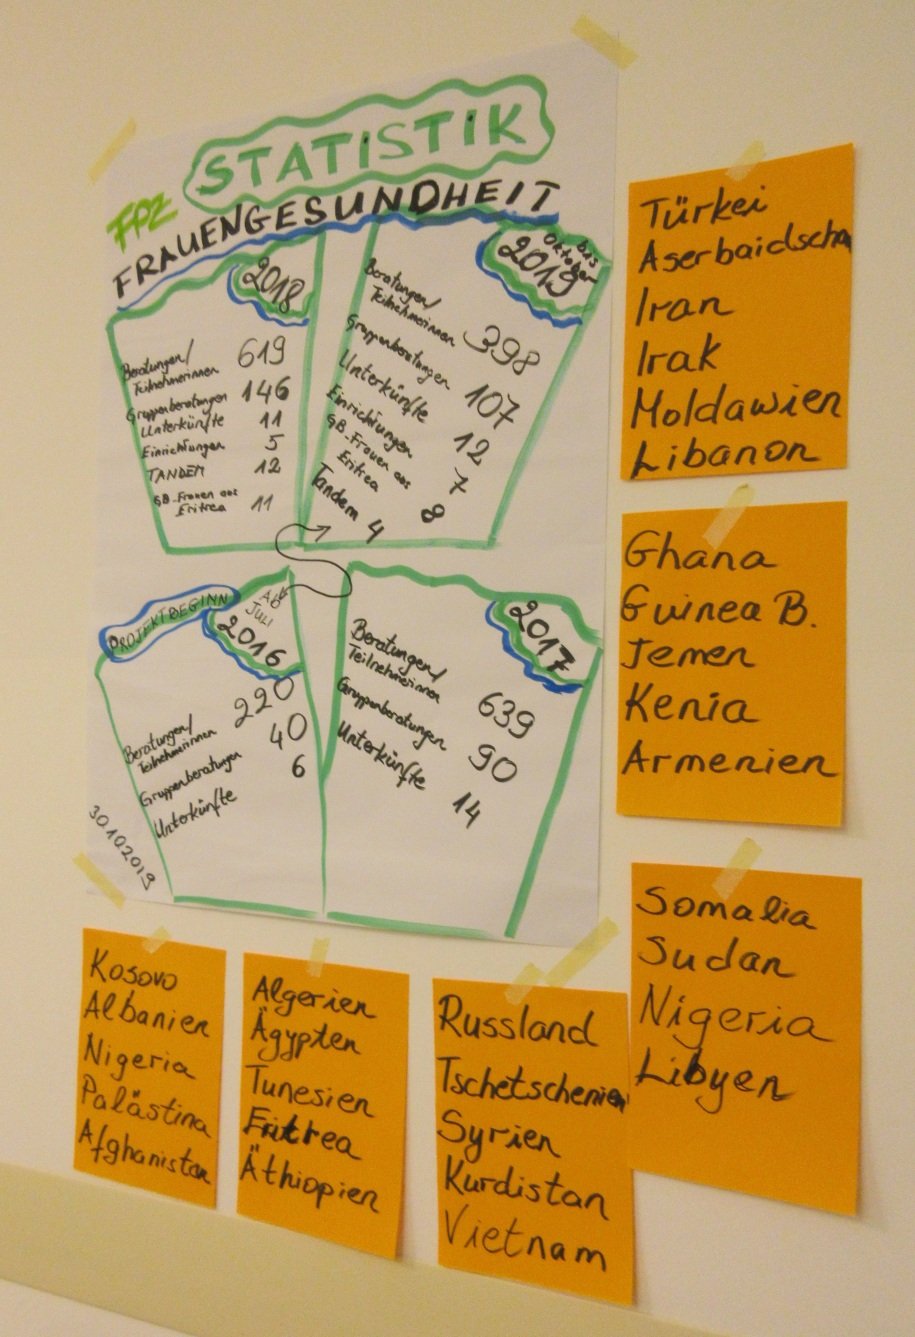 STATISTIK
FPZ
FRAUENGESUNDHEIT
2018
Beratungen/
Teilnehmerinnen 619
Gruppenberatungen 146
Unterkünfte 11
Einrichtungen 5
TANDEM 12
GB-Frauen aus
Eritrea 11
bis
Oktober
2019
Beratungen/
Teilnehmerinnen 398
Gruppenberatungen 107
Unterkünfte 12
Einrichtungen 7
GB-Frauen aus
Eritrea 8
Tandem 4
PROJEKTBEGINN
AB
JULI
2016
Beratungen/
Teilnehmerinnen 220
Gruppenberatungen 40
Unterkünfte 6
2017
Beratungen/
Teilnehmerinnen 639
Gruppenberatungen 90
Unterkünfte 14
30.10.2019
Türkei
Aserbaidscha
Iran
Irak
Moldawien
Libanon
Ghana
Guinea B.
Jemen
Kenia
Armenien
Somalia
Sudan
Nigeria
Libyen
Kosovo
Albanien
Nigeria
Palästina
Afghanistan
Algerien
Ägypten
Tunesien
Eritrea
Äthiopien
Russland
Tschetschenien
Syrien
Kurdistan
Vietnam